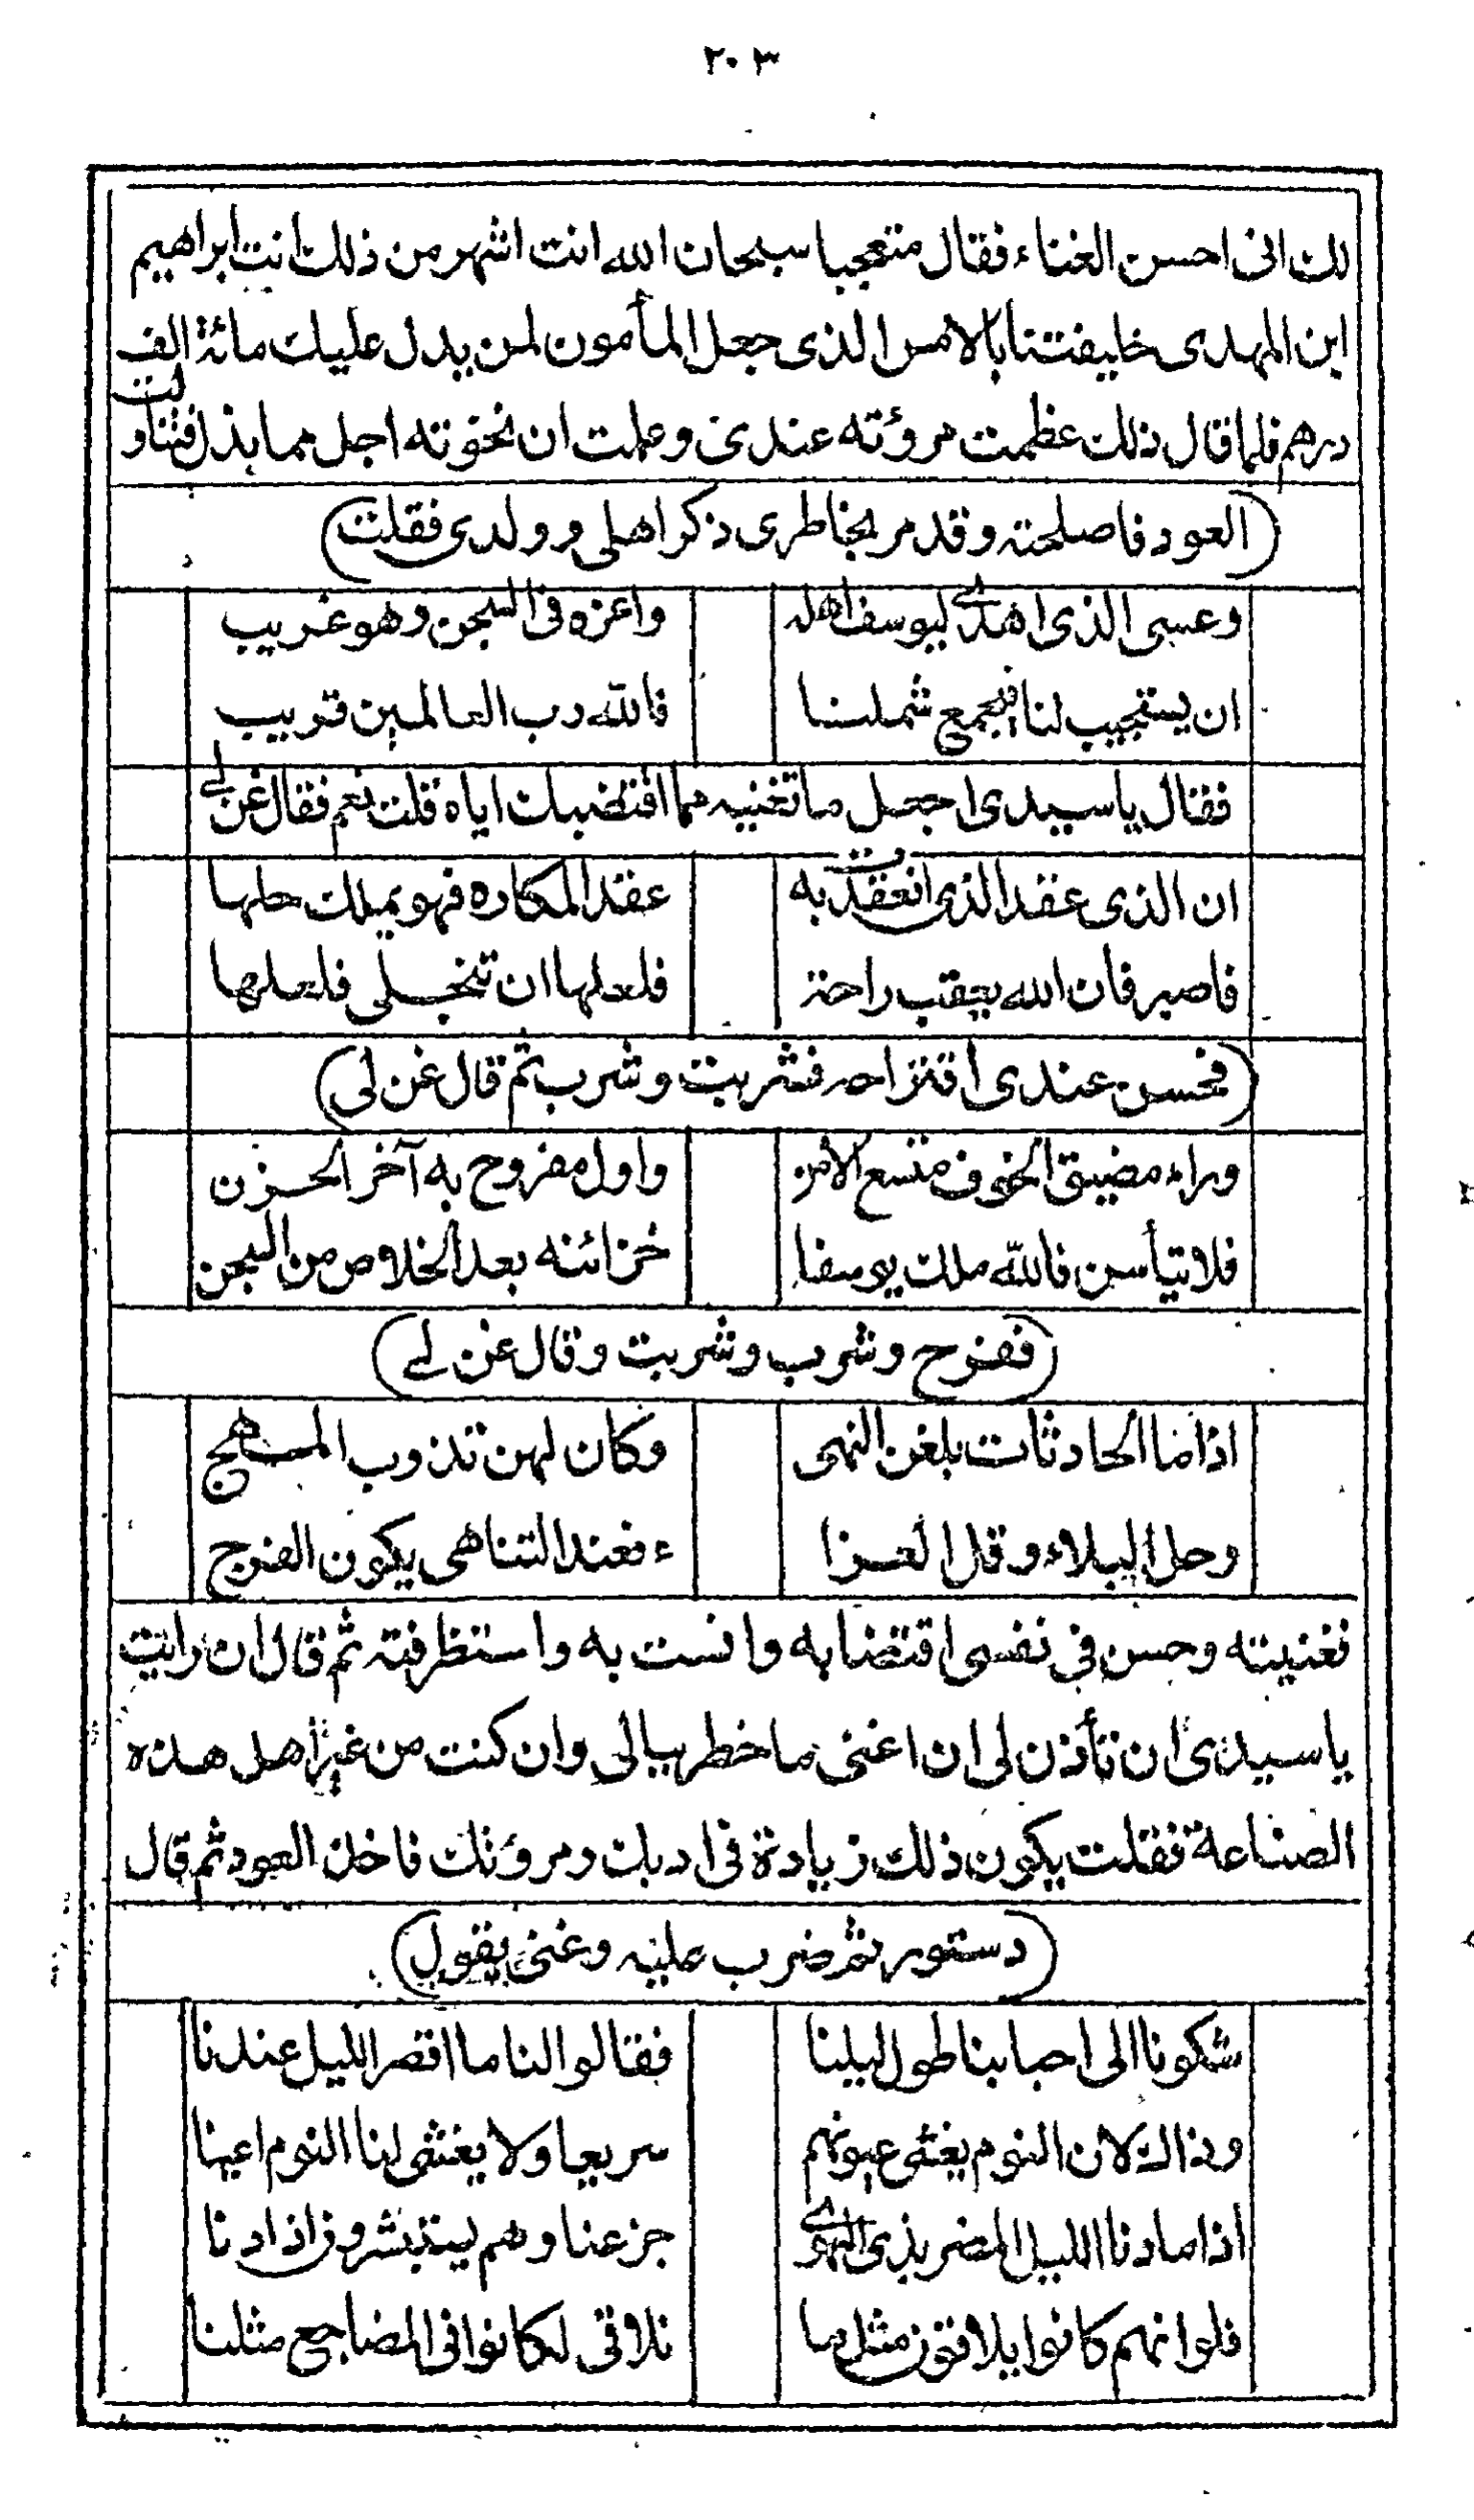 ٢٠٣
لك انى احسن الغناء فقال متعجبا سبحان الله انت اشهر من ذلك انت ابراهيم
ابن المهدى خليفتنا بالامس الذى جعل المأمون لمن يدل عليك مائة الف
درهم فلما قال ذلك عظمت مروءته عندى وعلمت ان نخوته اجل مما بذل فتناولت
(العود فاصلحته وقد مر بخاطرى ذكر اهلى وولدى فقلت)
وعسى الذى اهدى ليوسف اهله واعزه فى السجن وهو غريب
ان يستجيب لنا فيجمع شملنا فالله رب العالمين قريب
فقال ياسيدى اجعل ما تغنيه مما اقتضبك اياه قلت نعم فقال غن لى
ان الذى عقد الذى انعقدت به عقد المكاره فهو يملك حلها
فاصبر فان الله يعقب راحة فلعلها ان تنجلى فلعلها
(فحسن عندى اقتراحه فشربت وشرب ثم قال غن لى)
وراء مضيق الخوف متسع الامن واول مفروح به آخر الحزن
فلا تيأسن فالله ملك يوسفا خزائنه بعد الخلاص من السجن
(ففرح وشرب وشربت وقال غن لى)
اذا ما الحادثات بلغن النهى وكان لهن تذوب المهج
وحل البلاء وقل العزا ء فعند التناهى يكون الفرج
فغنيته وحسن فى نفسى اقتضابه وانست به واستظرفته ثم قال ان رايت
ياسيدى ان تأذن لى ان اغنى ما خطر ببالى وان كنت من غير اهل هذه
الصناعة فقلت يكون ذلك زيادة فى ادبك ومروءتك فاخذ العود ثم قال
(دستور ثم ضرب عليه وغنى يقول)
شكونا الى احبابنا طول ليلنا فقالوا لنا ما اقصر الليل عندنا
وذاك لان النوم يغشى عيونهم سريعا ولا يغشى لنا النوم اعينا
اذا ما دنا الليل المضر بذى الهوى جزعنا وهم يستبشرون اذا دنا
فلو انهم كانوا يلاقون مثل ما نلاقى لكانوا فى المضاجع مثلنا